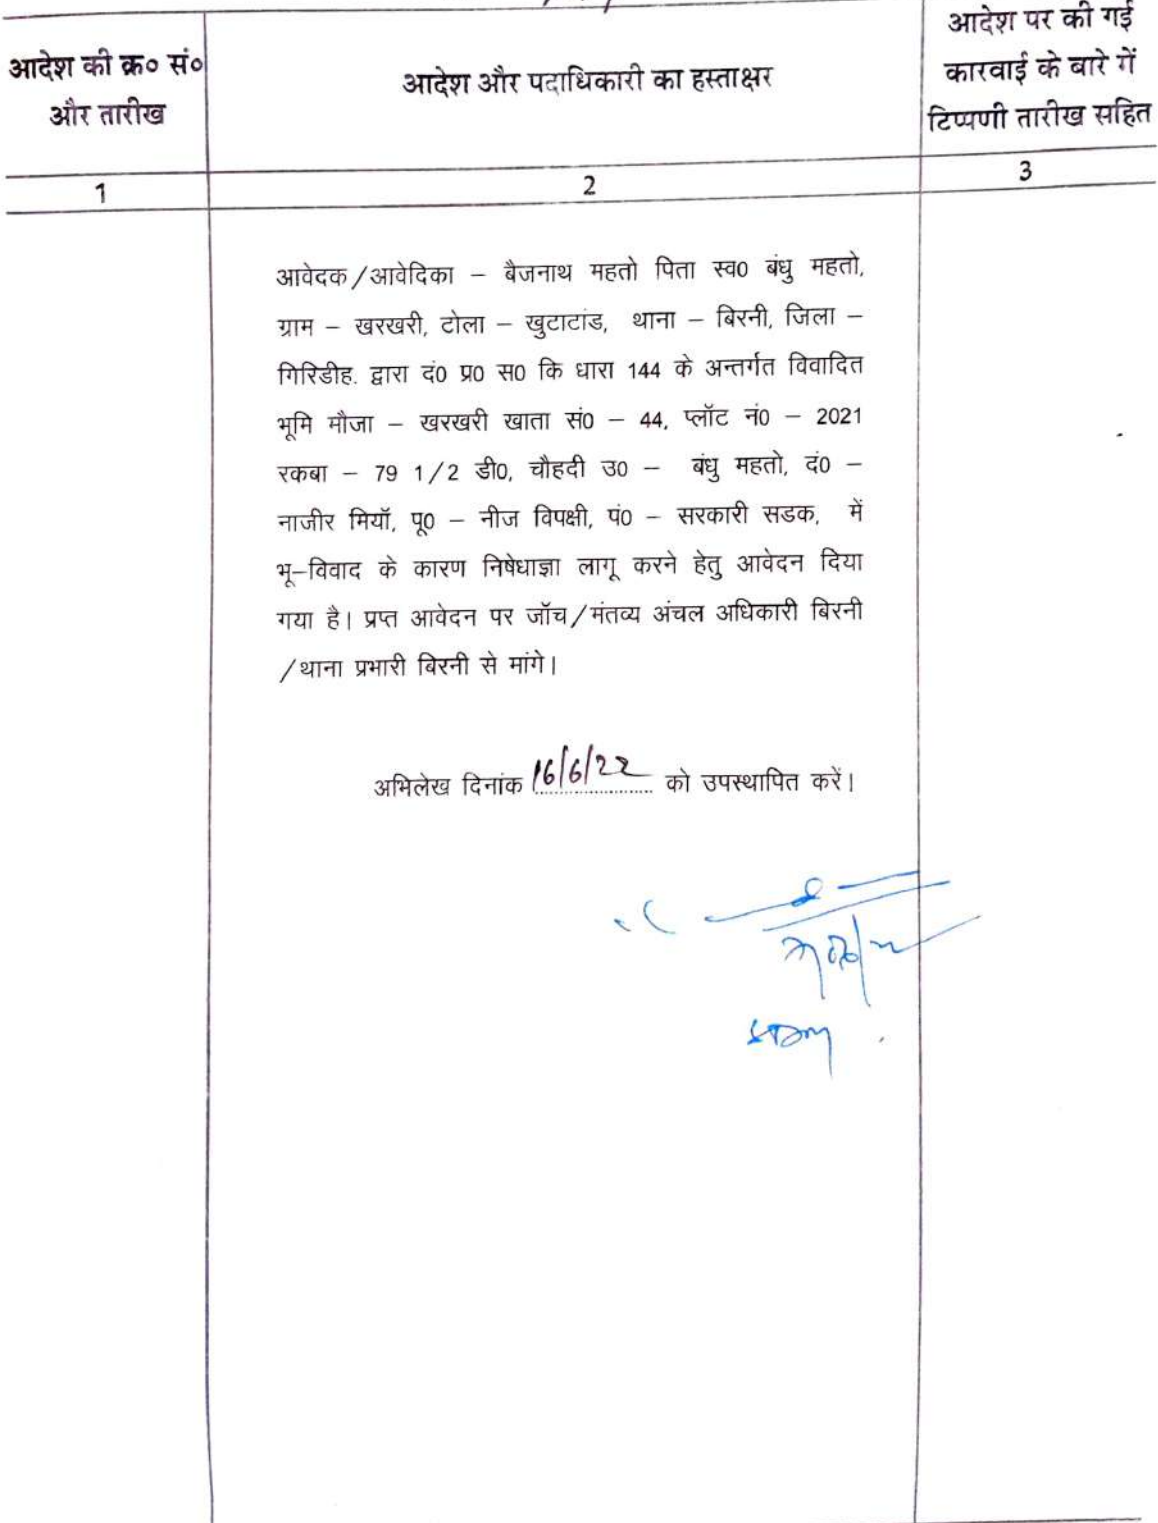 आदेश की क्र० सं०
और तारीख
आदेश और पदाधिकारी का हस्ताक्षर
आदेश पर की गई
कारवाई के बारे में
टिप्पणी तारीख सहित
1
2
3
आवेदक/आवेदिका – बैजनाथ महतो पिता स्व0 बंधु महतो,
ग्राम – खरखरी, टोला – खुटाटांड, थाना – बिरनी, जिला –
गिरिडीह. द्वारा दं0 प्र0 स0 कि धारा 144 के अन्तर्गत विवादित
भूमि मौजा – खरखरी खाता सं0 – 44, प्लॉट नं0 – 2021
रकबा – 79 1/2 डी0, चौहदी उ0 – बंधु महतो, दं0 –
नाजीर मियॉ, पू0 – नीज विपक्षी, पं0 – सरकारी सडक, में
भू–विवाद के कारण निषेधाज्ञा लागू करने हेतु आवेदन दिया
गया है। प्रप्त आवेदन पर जॉच/मंतव्य अंचल अधिकारी बिरनी
/थाना प्रभारी बिरनी से मांगे।
अभिलेख दिनांक 16/6/22 को उपस्थापित करें।